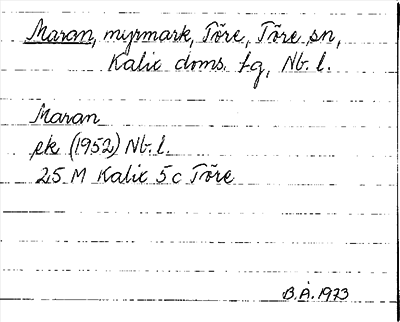 Maran, myrmark, Töre, Töre sn,
Kalix doms. tg, Nb. l.
Maran
ek (1952) Nb. l.
25 M Kalix 5c Töre
B.Å. 1973